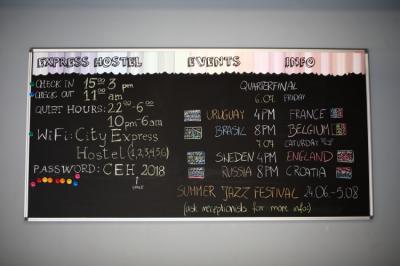 EXPRESS HOSTEL EVENTS INFO
CHECK IN 15:00 3 pm
CHECK OUT 11:00 am
QUIET HOURS: 22:00-6:00
10pm-6am
WiFi: City Express
Hostel (1,2,3,4,5,6)
PASSWORD: CEH_2018
SPACE
QUARTERFINAL
6.07. FRIDAY
URUGUAY 4PM FRANCE
BRASIL 8PM BELGIUM
7.07
SWEDEN 4PM ENGLAND
RUSSIA 8PM CROATIA
SUMMER JAZZ FESTIVAL 24.06-5.08
(ask receptionists for more info:)